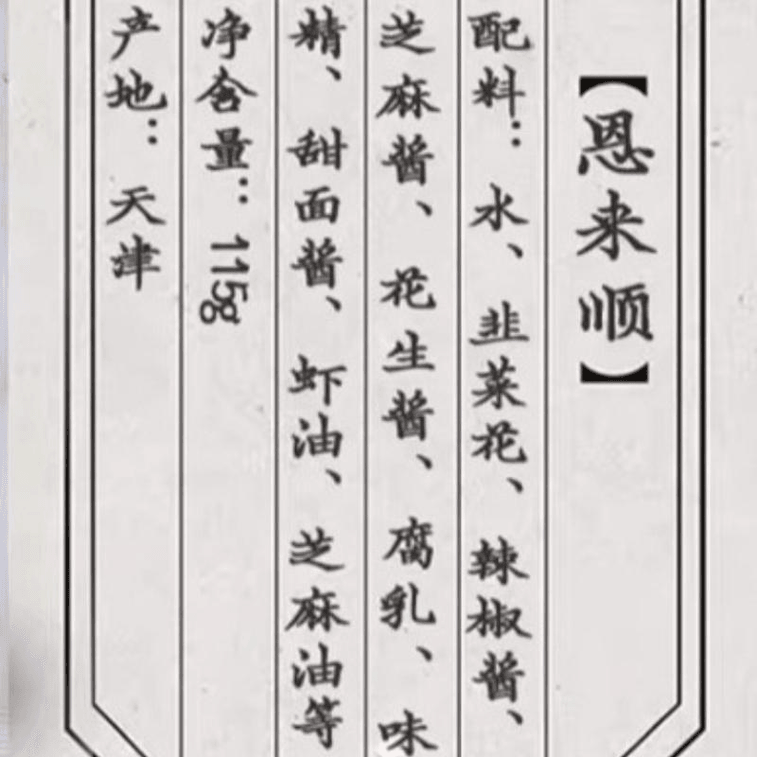 【恩来顺】
配料：水、韭菜花、辣椒酱、
芝麻酱、花生酱、腐乳、味
精、甜面酱、虾油、芝麻油等
净含量：115g
产地：天津